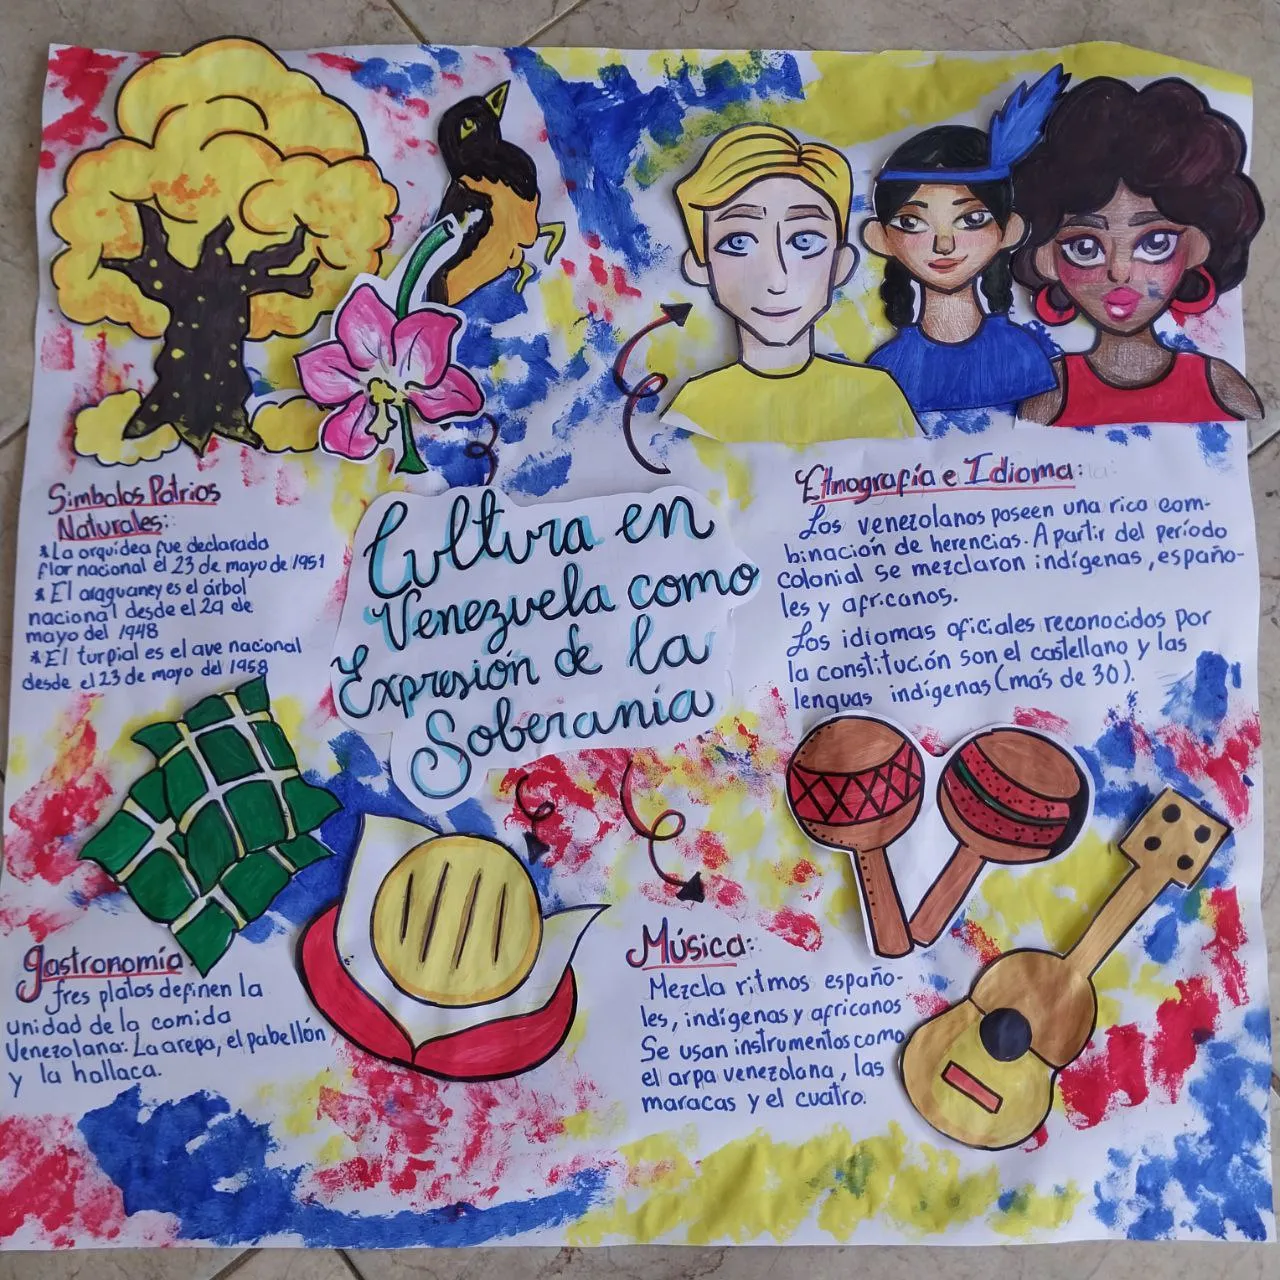 Cultura en
Venezuela como
Expresión de la
Soberanía
Simbolos Patrios
Naturales:
*La orquídea fue declarada
flor nacional el 23 de mayo de 1951
*El araguaney es el árbol
nacional desde el 29 de
mayo del 1948
*El turpial es el ave nacional
desde el 23 de mayo del 1958
Etnografía e Idioma:
Los venezolanos poseen una rica com-
binación de herencias. A partir del período
colonial se mezclaron indígenas, españo-
les y africanos.
Los idiomas oficiales reconocidos por
la constitución son el castellano y las
lenguas indígenas (más de 30).
gastronomía:
Tres platos definen la
unidad de la comida
Venezolana: La arepa, el pabellón
y la hallaca.
Música:
Mezcla ritmos españo-
les, indígenas y africanos
Se usan instrumentos como
el arpa venezolana, las
maracas y el cuatro.